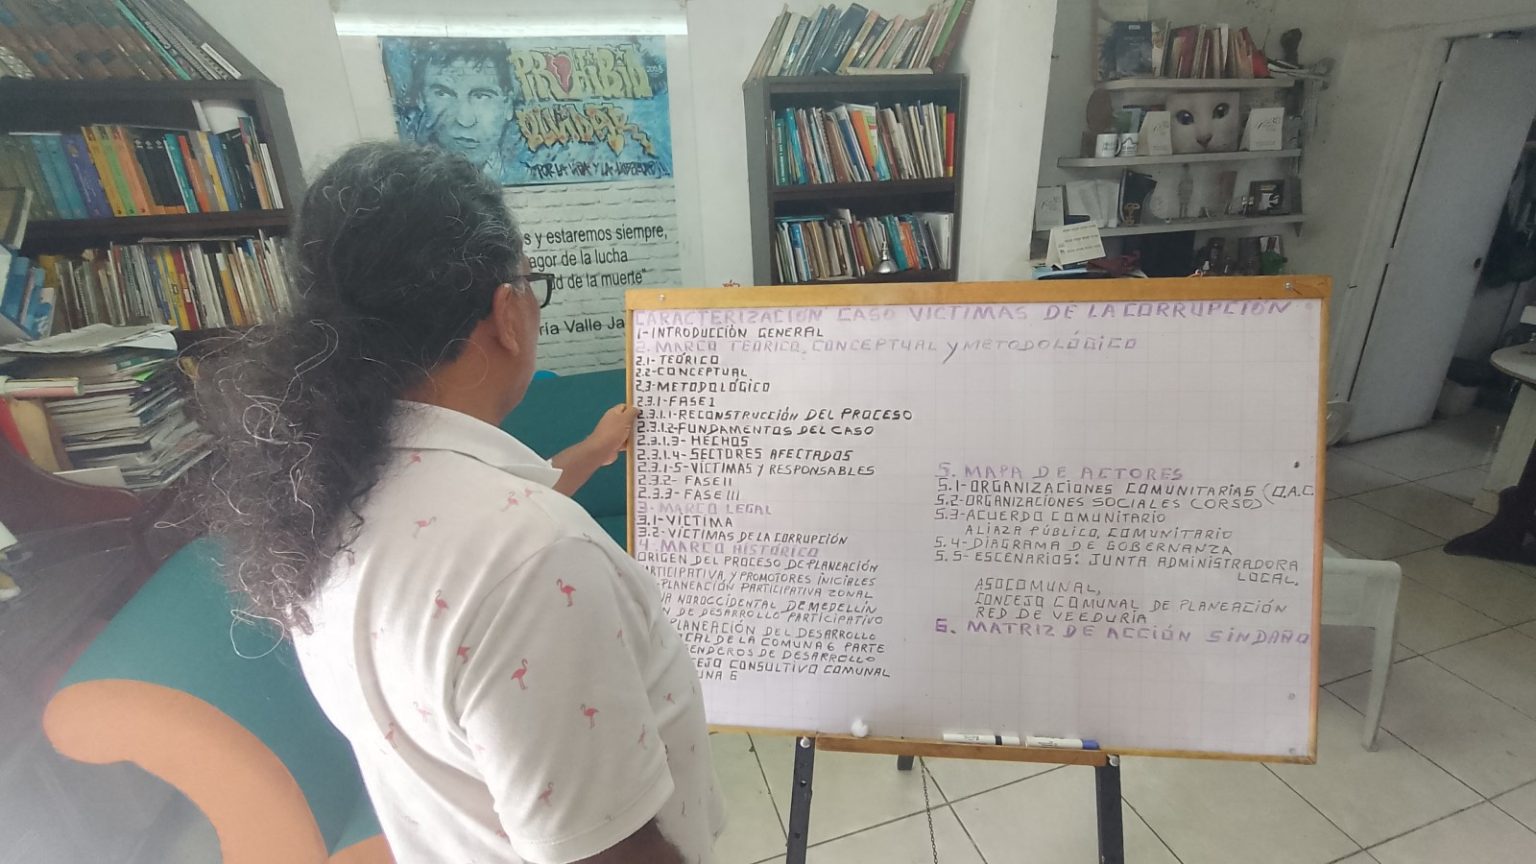 PROHIBIDO
OLVIDAR
"POR LA VIDA Y LA
s y estaremos siempre,
agor de la lucha
ad de la muerte"
ría Valle Ja
CARACTERIZACIÓN CASO VICTIMAS DE LA CORRUPCIÓN
1- INTRODUCCIÓN GENERAL
2. MARCO TEÓRICO, CONCEPTUAL Y METODOLÓGICO
2.1- TEÓRICO
2.2- CONCEPTUAL
2.3- METODOLÓGICO
2.3.1- FASE I
2.3.1.1- RECONSTRUCCIÓN DEL PROCESO
2.3.1.2- FUNDAMENTOS DEL CASO
2.3.1.3- HECHOS
2.3.1.4- SECTORES AFECTADOS
2.3.1-5- VÍCTIMAS Y RESPONSABLES
2.3.2- FASE II
2.3.3- FASE III
3- MARCO LEGAL
3.1- VÍCTIMA
3.2- VÍCTIMAS DE LA CORRUPCIÓN
4. MARCO HISTÓRICO
ORIGEN DEL PROCESO DE PLANEACIÓN
PARTICIPATIVA Y PROMOTORES INICIALES
PLANEACIÓN PARTICIPATIVA ZONAL
NA NOROCCIDENTAL DE MEDELLÍN
N DE DESARROLLO PARTICIPATIVO
PLANEACIÓN DEL DESARROLLO
CAL DE LA COMUNA 6 PARTE
ENDEROS DE DESARROLLO
EJO CONSULTIVO COMUNAL
UNA 6
5. MAPA DE ACTORES
5.1- ORGANIZACIONES COMUNITARIAS (O.A.C
5.2- ORGANIZACIONES SOCIALES (ORSO)
5.3- ACUERDO COMUNITARIO
ALIAZA PÚBLICO, COMUNITARIO
5.4- DIAGRAMA DE GOBERNANZA
5.5- ESCENARIOS: JUNTA ADMINISTRADORA
LOCAL.
ASOCOMUNAL,
CONCEJO COMUNAL DE PLANEACIÓN
RED DE VEEDURÍA
6. MATRIZ DE ACCIÓN SIN DAÑO